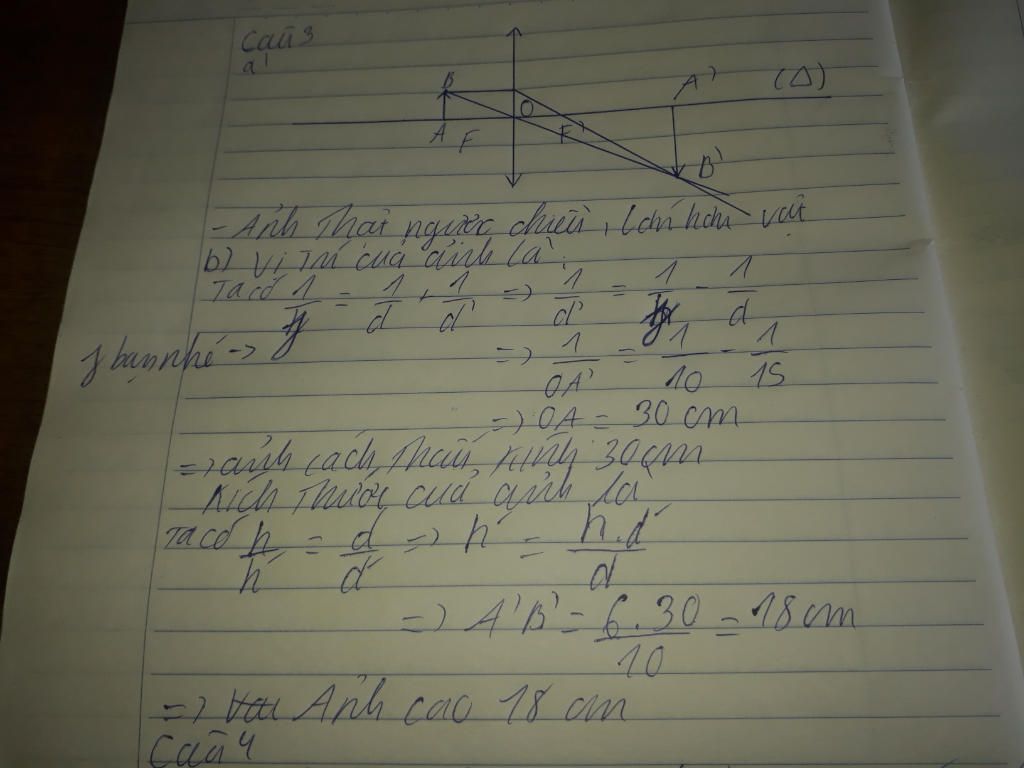 Câu 3
a)
B A' (Δ)
O
A F F' B'
- Ảnh thật ngược chiều, lớn hơn vật
b) Vị trí của ảnh là:
Ta có 1/f = 1/d + 1/d' => 1/d' = 1/f - 1/d
f bạn nhé -> => 1/OA' = 1/10 - 1/15
=> OA = 30 cm
=> ảnh cách thấu kính 30cm
Kích thước của ảnh là
Ta có h/h' = d/d' => h' = h.d'/d
=> A'B' = 6.30/10 = 18 cm
=> Ảnh cao 18 cm
Câu 4